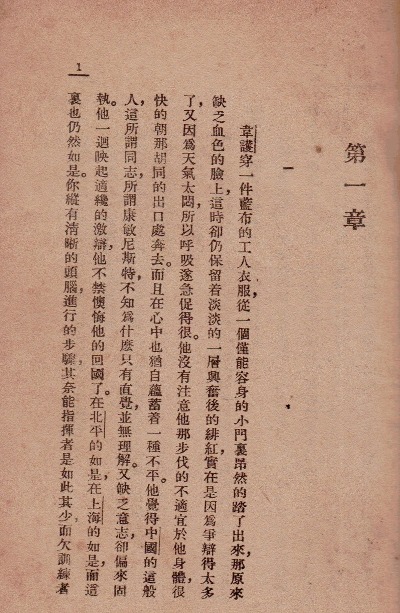 第一章
一
韋護穿一件藍布的工人衣服，從一個僅能容身的小門裏昂然的踏了出來，那原來
缺乏血色的臉上，這時卻仍保留着淡淡的一層興奮後的緋紅，實在是因爲爭辯得太多
了，又因爲天氣太悶，所以呼吸遂急促得很。他沒有注意他那步伐的不適宜於他身體，很
快的朝那胡同的出口處奔去。而且在心中也猶自蘊蓄着一種不平。他覺得中國的這般
人，這所謂同志，所謂康敏尼斯特，不知爲什麽只有直覺，並無理解。又缺乏意志，卻偏來固
執。他一迴映起適纔的激辯，他不禁懊悔他的回國了。在北平的如是，在上海的如是，而這
裏也仍然如是。你縱有清晰的頭腦，進行的步驟，其奈能指揮者是如此其少，而欠訓練者
1